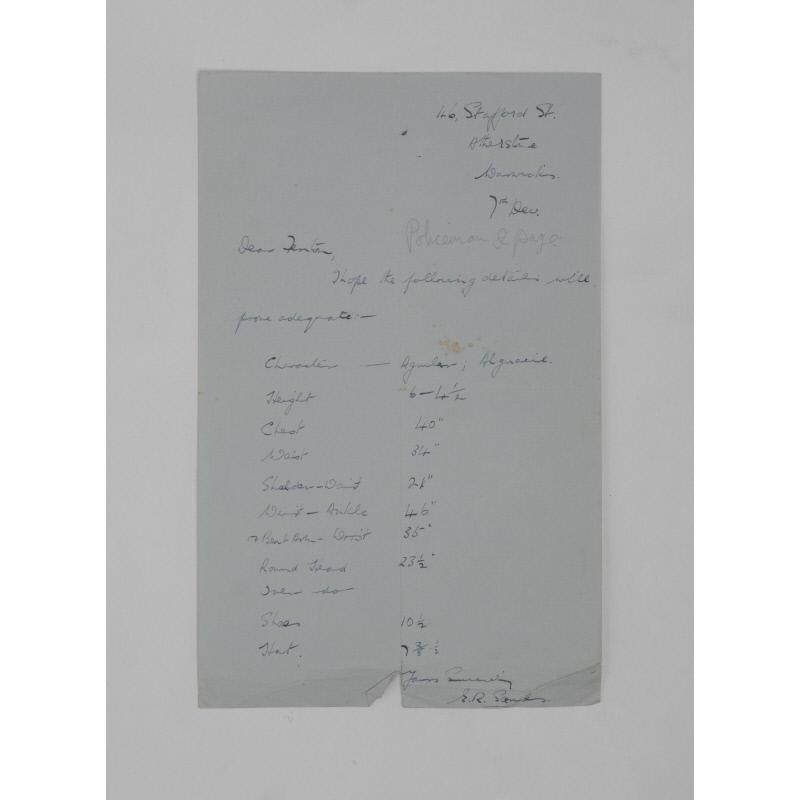 46, Stafford St.
Atherstone
Warwicks.
7th Dec.
Policeman & page
Dear Fenton,
I hope the following details will
prove adequate:—
Character — Aguilar; Alguacil.
Height 6 – 4 1/2
Chest 40"
Waist 34"
Shoulder–Waist 21"
Waist – Ankle 46"
Bent Arm – Wrist 35"
Round Head 23 1/2"
Over do
Shoes 10 1/2
Hat. 7
Yours Sincerely
E.R.